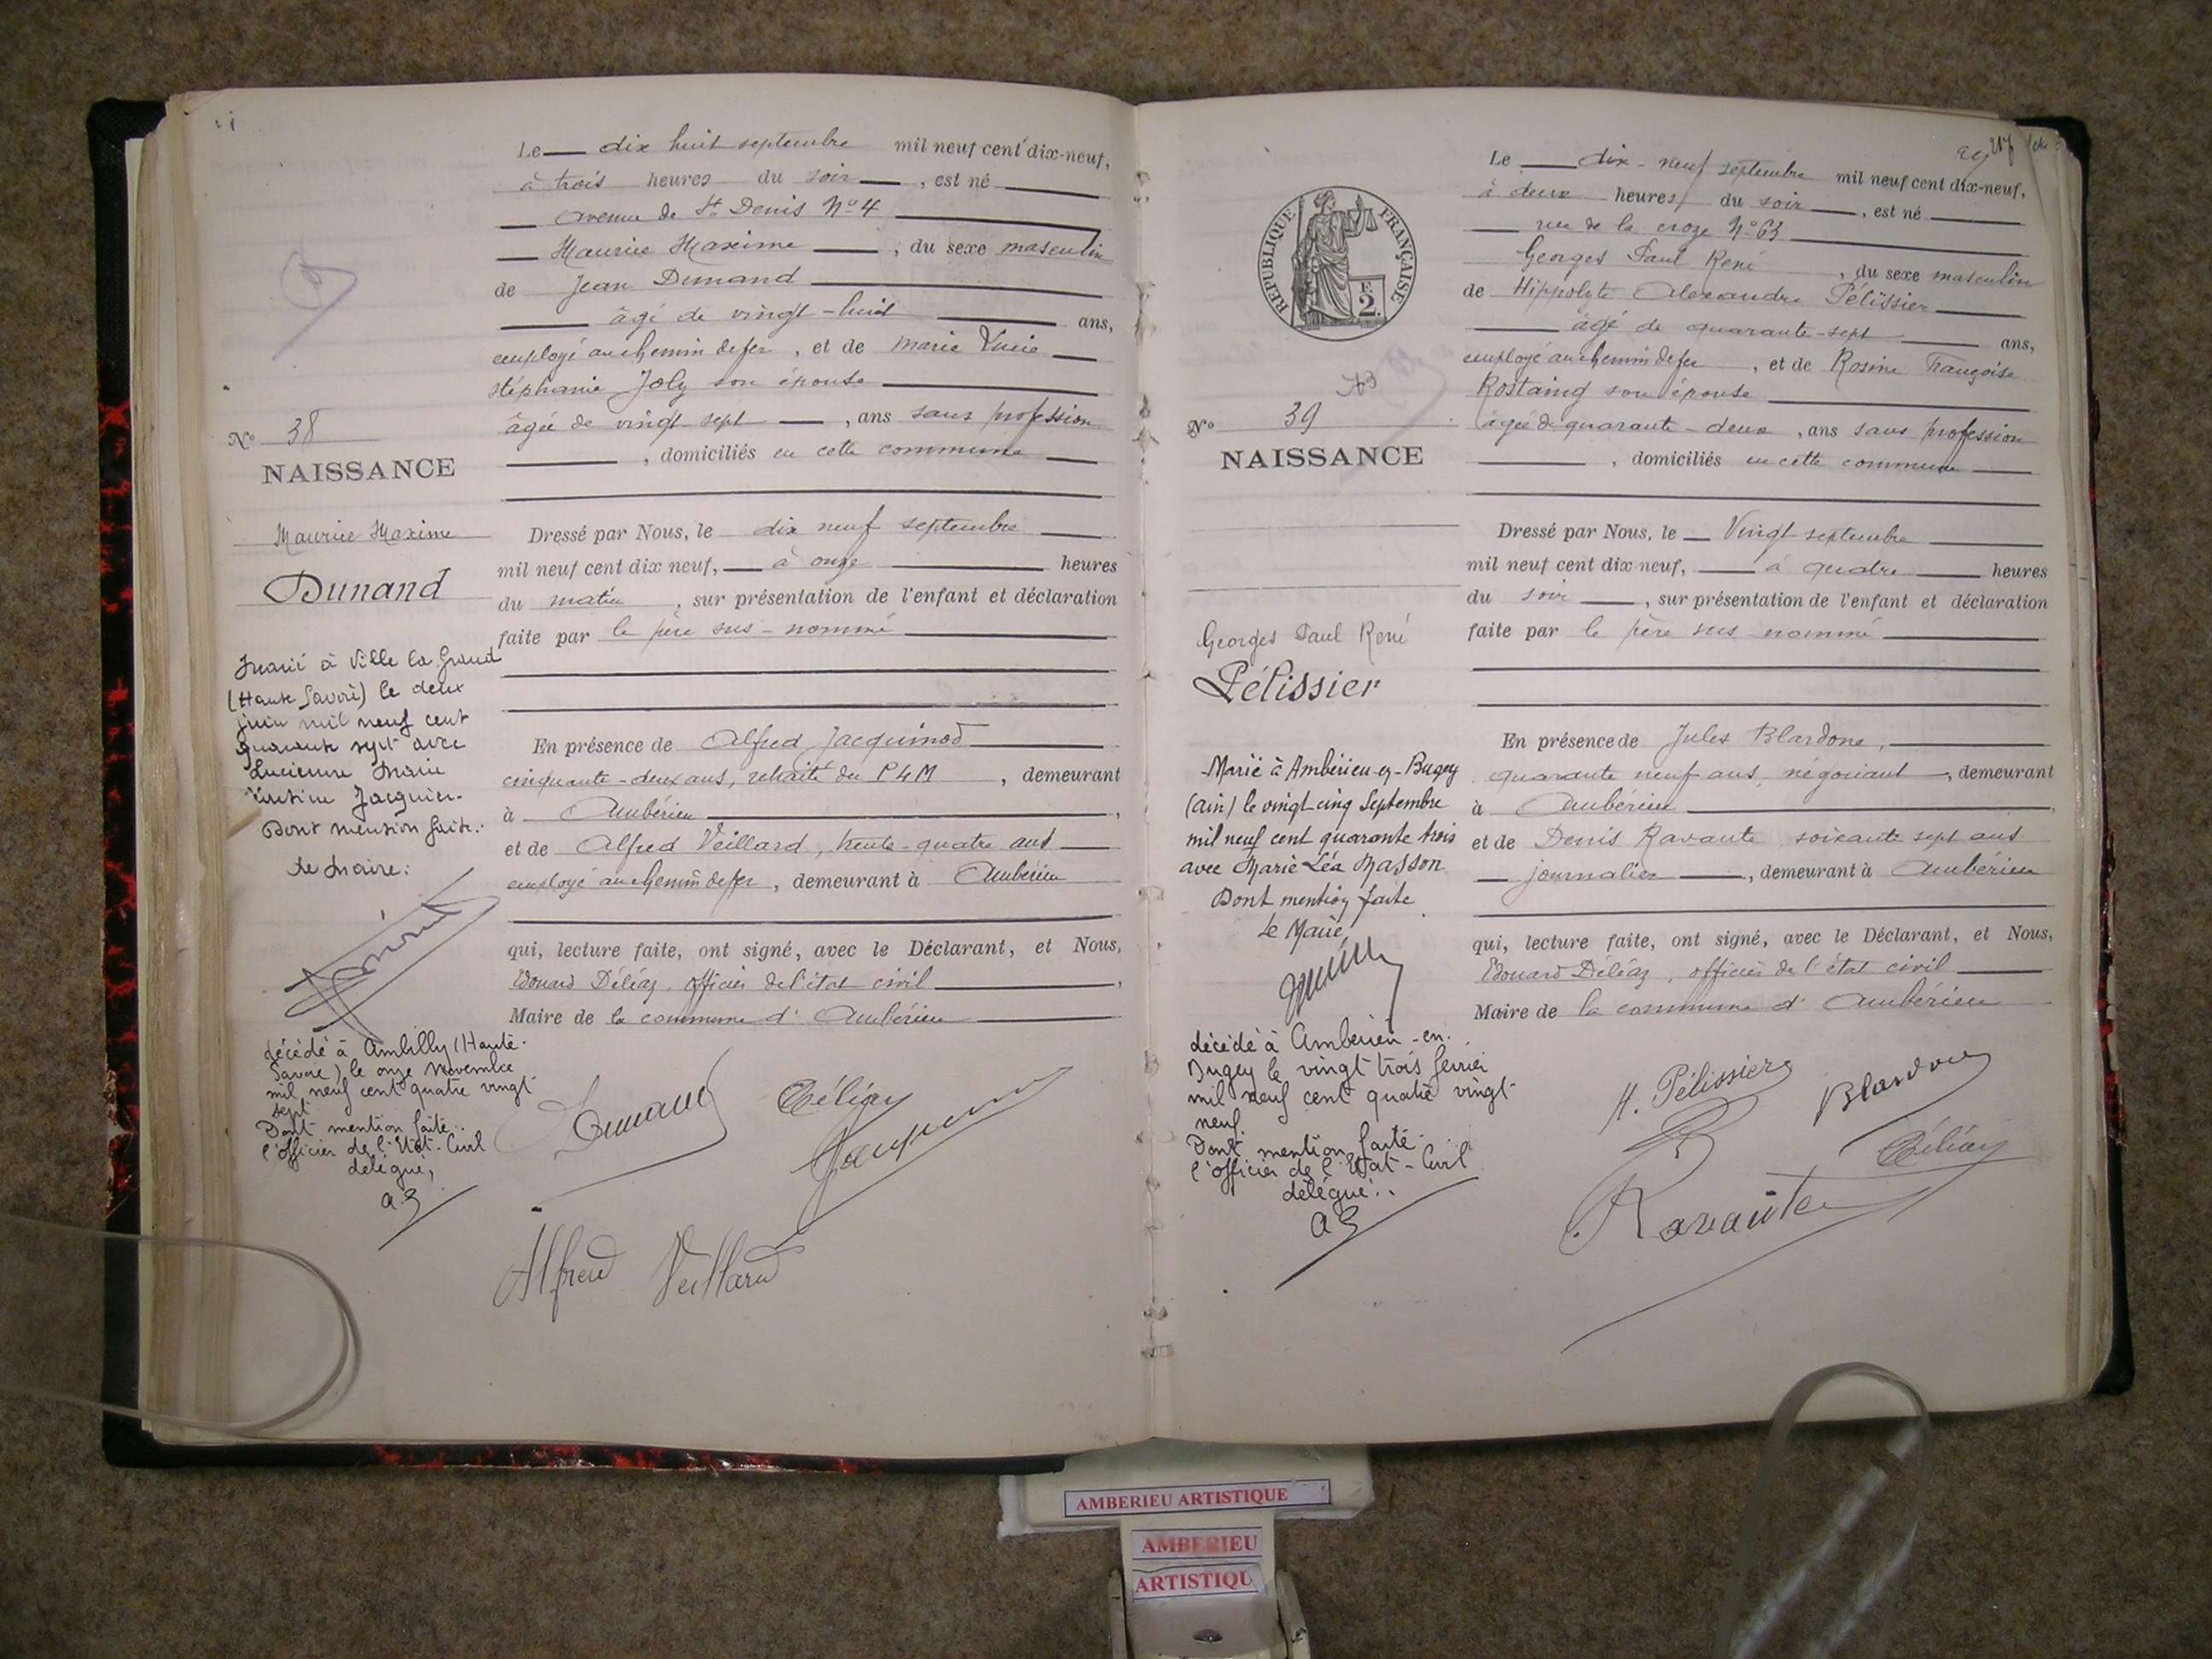 Le dix huit septembre mil neuf cent dix-neuf,
à trois heures du soir, est né
avenue de St Denis No 4
Maurice Maxime, du sexe masculin
de Jean Dunand
âgé de vingt-huit ans,
employé au chemin de fer, et de Marie Lucie
Stéphanie Joly son épouse
âgée de vingt sept, ans sans profession
, domiciliés en cette commune
No 38
NAISSANCE
Maurice Maxime
Dunand
Dressé par Nous, le dix neuf septembre
mil neuf cent dix neuf, à onze heures
du matin, sur présentation de l'enfant et déclaration
faite par le père sus-nommé
En présence de Alfred Jacquinod
cinquante-deux ans, retraité du PLM, demeurant
à Ambérieu,
et de Alfred Veillard, trente-quatre ans
employé au chemin de fer, demeurant à Ambérieu
qui, lecture faite, ont signé, avec le Déclarant, et Nous,
Edouard Déléaz, officier de l'état civil,
Maire de la commune d'Ambérieu
Marié à Ville la Grand
(Haute Savoie) le deux
juin mil neuf cent
quarante sept avec
Lucienne Marie
Jacquier.
Dont mention faite.
Le Maire:
décédé à Ambilly (Haute-
Savoie) le onze Novembre
mil neuf cent quatre vingt
sept
Dont mention faite..
l'officier de l'Etat-Civil
délégué,
Dunand
Déléaz
Jacquinod
Alfred Veillard
217
Le dix-neuf septembre mil neuf cent dix-neuf,
à deux heures du soir, est né
rue de la croze No 63
Georges Paul René, du sexe masculin
de Hippolyte Alexandre Pélissier
âgé de quarante-sept ans,
employé au chemin de fer, et de Rosine Françoise
Rostaing son épouse
âgée de quarante-deux, ans sans profession
, domiciliés en cette commune
REPUBLIQUE FRANÇAISE
F.
2.
No 39
NAISSANCE
Georges Paul René
Pélissier
Dressé par Nous, le Vingt septembre
mil neuf cent dix neuf, à quatre heures
du soir, sur présentation de l'enfant et déclaration
faite par le père sus nommé
En présence de Jules Blardone,
quarante neuf ans, négociant, demeurant
à Ambérieu,
et de Denis Ravaute soixante sept ans
journalier, demeurant à Ambérieu
qui, lecture faite, ont signé, avec le Déclarant, et Nous,
Edouard Déléaz, officier de l'état civil
Maire de la commune d'Ambérieu
Marié à Ambérieu-en-Bugey
(Ain) le vingt cinq Septembre
mil neuf cent quarante trois
avec Marie Léa Masson
Dont mention faite
Le Maire,
décédé à Ambérieu-en-
Bugey le vingt trois février
mil neuf cent quatre vingt
neuf.
Dont mention faite.
l'officier de l'Etat-Civil
délégué..
H. Pélissier
Blardone
Déléaz
Ravaute
AMBERIEU ARTISTIQUE
AMBERIEU
ARTISTIQU